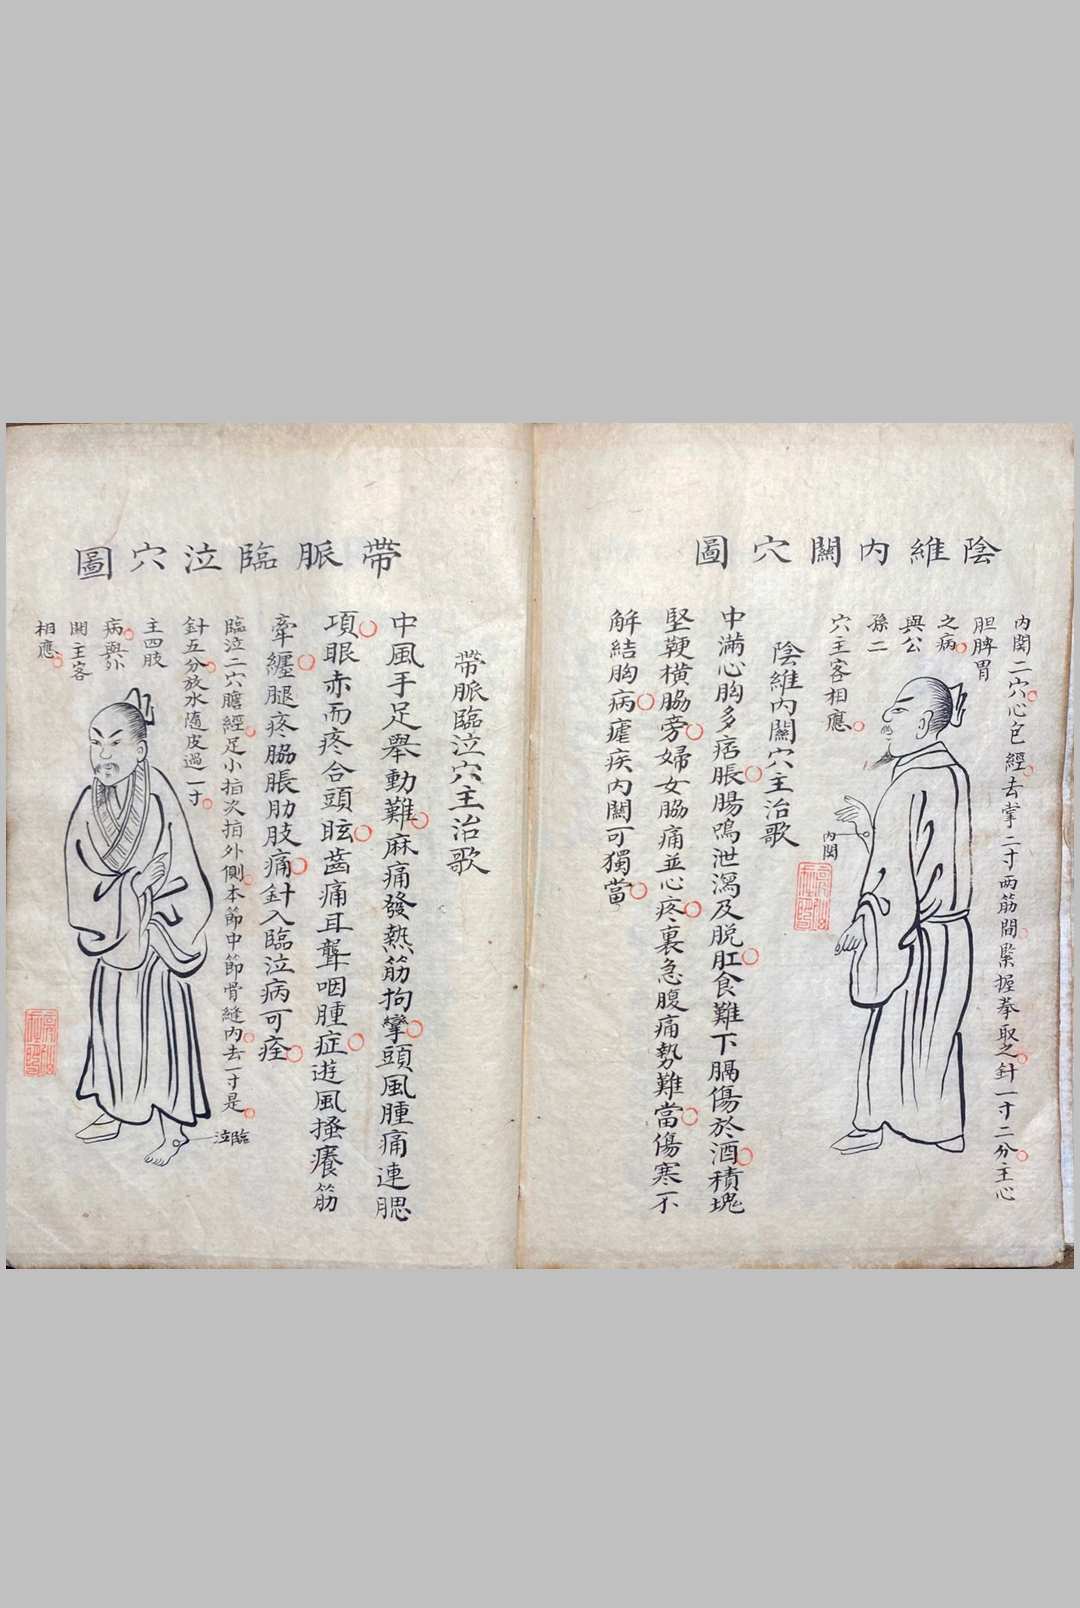 陰維內關穴圖
內関二穴心包經去掌二寸兩筋間緊握拳取之針一寸二分主心
胆脾胃
之病
與公
孫二
穴主客相應
內関
陰維內關穴主治歌
中滿心胸多痞脹腸鳴泄瀉及脫肛食難下膈傷於酒積塊
堅鞕橫脇旁婦女脇痛並心疼裏急腹痛勢難當傷寒不
解結胸病瘧疾內關可獨當
帶脈臨泣穴圖
帶脈臨泣穴主治歌
中風手足舉動難麻痛發熱筋拘攣頭風腫痛連腮
項眼赤而疼合頭眩齒痛耳聾咽腫症遊風搔癢筋
牽纏腿疼脇脹肋肢痛針入臨泣病可痊
臨泣二穴膽經足小指次指外側本節中節骨縫內去一寸是
針五分放水隨皮過一寸
主四肢
病與外
関主客
相應
臨泣